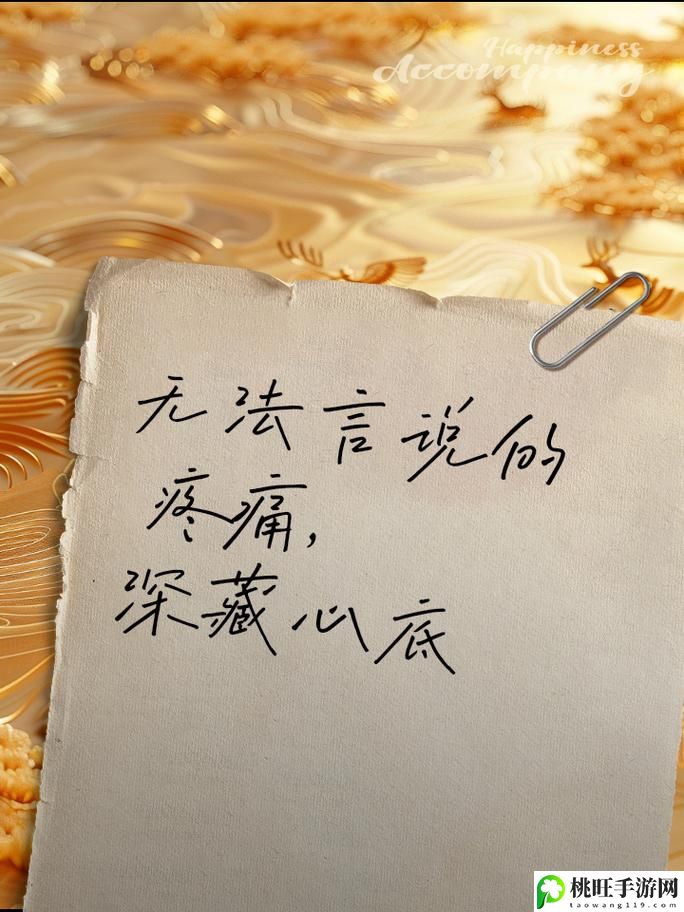 Happiness
Accompany
无法言说的
疼痛,
深藏心底
桃旺手游网
taowang119.com